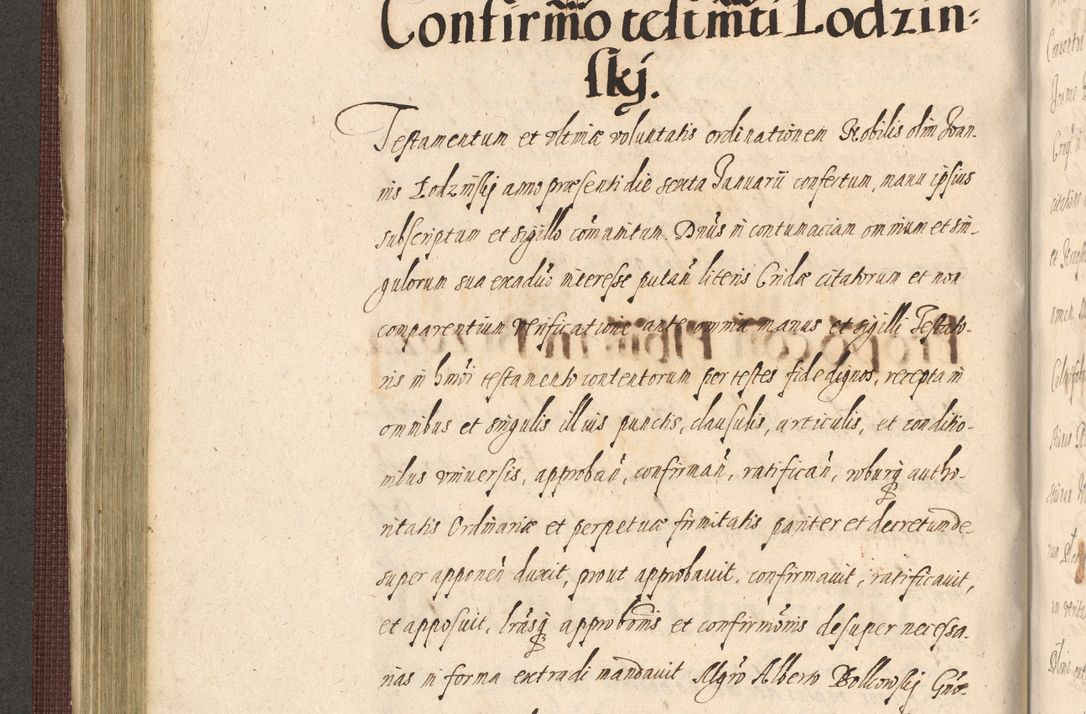 Confirmõ testmti Lodzin-
skj.
Testamentum et vltimæ voluntatis ordinationem Nobilis olim Joan-
nis Lodzinskj anno præsenti die sexta Januarii confectum, manu ipsius
subscriptum et sigillo cõmunitum. Dnus in contumaciam omnium et sin-
gulorum sua exaduo interesse putañ literis Cridæ citatorum et non
comparentium verificatione ante omnia manus et sigilli Testato-
ris in hmõi testamento contentorum per testes fide dignos, recepta in
omnibus et singulis illius punctis, clausulis, articulis, et conditio-
nibus vniuersis, approbañ, confirmañ, ratificañ, roburq autho-
ritatis Ordinariæ et perpetuæ firmitatis pariter et decretum de-
super apponeñ duxit, prout approbauit, confirmauit, ratificauit,
et apposuit, lrasq approbõnis et confirmõnis desuper necessa-
rias in forma extradi mandauit Mgrõ Alberto